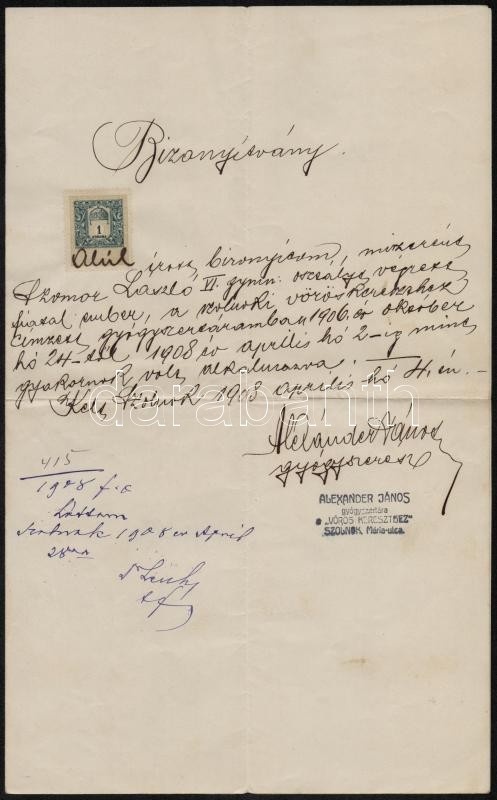 Bizonyítvány.
1
KORONA
Alúl
írott bizonyítom, miszerint
Szomor László VI. gymn. osztályt végzett
fiatal ember, a szolnoki vöröskereszthez
címzett gyógyszertáramban 1906. év október
hó 24-től 1908 év április hó 2-ig mint
gyakornok volt alkalmazva.
Kelt Szolnok 1908 április hó 4.én.
Alexander János
gyógyszerész
ALEXANDER JÁNOS
gyógyszertára
a „VÖRÖS KERESZTHEZ"
SZOLNOK, Mária-utca.
415
1908 f. o
Láttam
Szolnok 1908 év April
28án
Dr
darabanth